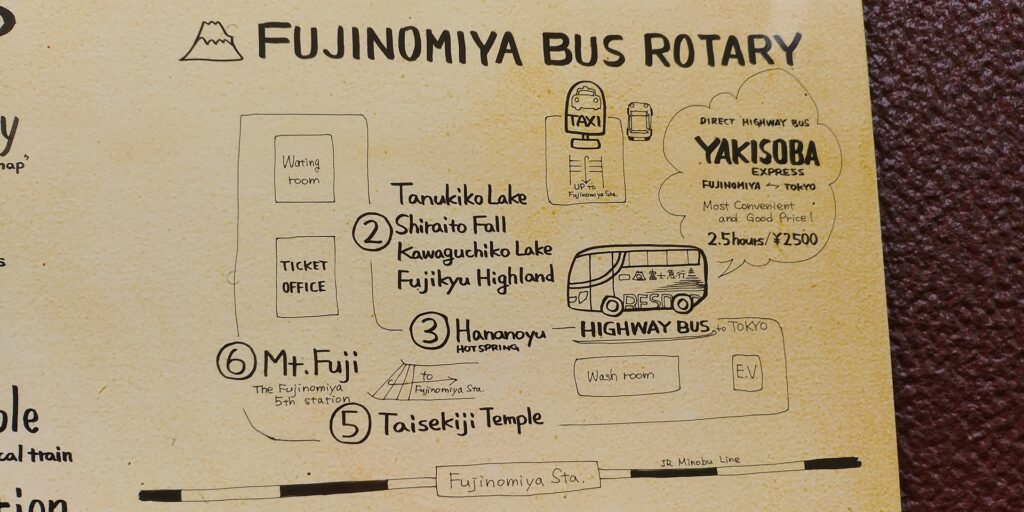 FUJINOMIYA BUS ROTARY
y
map"
s
ple
cal train
tion
Wating room
TICKET OFFICE
TAXI
UP to
Fujinomiya Sta.
DIRECT HIGHWAY BUS
YAKISOBA
EXPRESS
FUJINOMIYA ↔ TOKYO
Most Convenient
and Good Price!
2.5hours/¥2500
② Tanukiko Lake
Shiraito Fall
Kawaguchiko Lake
Fujikyu Highland
富士急行
RESORT
③ Hananoyu
HOTSPRING
HIGHWAY BUS to TOKYO
⑥ Mt.Fuji
The Fujinomiya
5th station
to
Fujinomiya Sta.
Wash room
E.V
⑤ Taisekiji Temple
JR Minobu Line
Fujinomiya Sta.